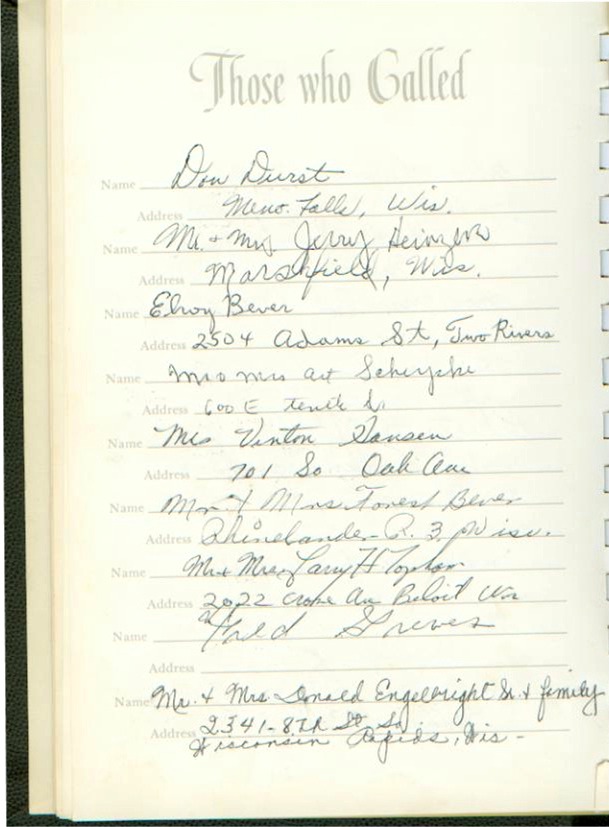 Those who Called
Name Don Durst
Address Meno. Falls, Wis.
Name Mr. + Mrs Jerry
Address Marshfield, Wis.
Name Elroy Bever
Address 2504 Adams St, Two Rivers
Name Mrs Art
Address 600 E tenth
Name Mrs Vinton Hansen
Address 701 So Oak Ave
Name Mr. & Mrs Forest Bever
Address Rhinelander R. 3. Wisc.
Name Mr + Mrs Larry H Topham
Address 2022 Ave Beloit Wis
Name Greves
Address
Name Mr. + Mrs. Donald Engelbright Sr. + family
Address 2341-8th St. So.
Wisconsin Rapids, Wis -